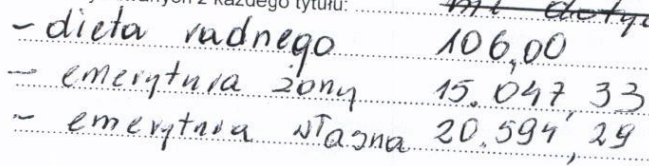 wanych z każdego tytułu: nie doty
- dieta radnego 106,00
- emerytura żony 15.047,33
- emerytura własna 20.594,29